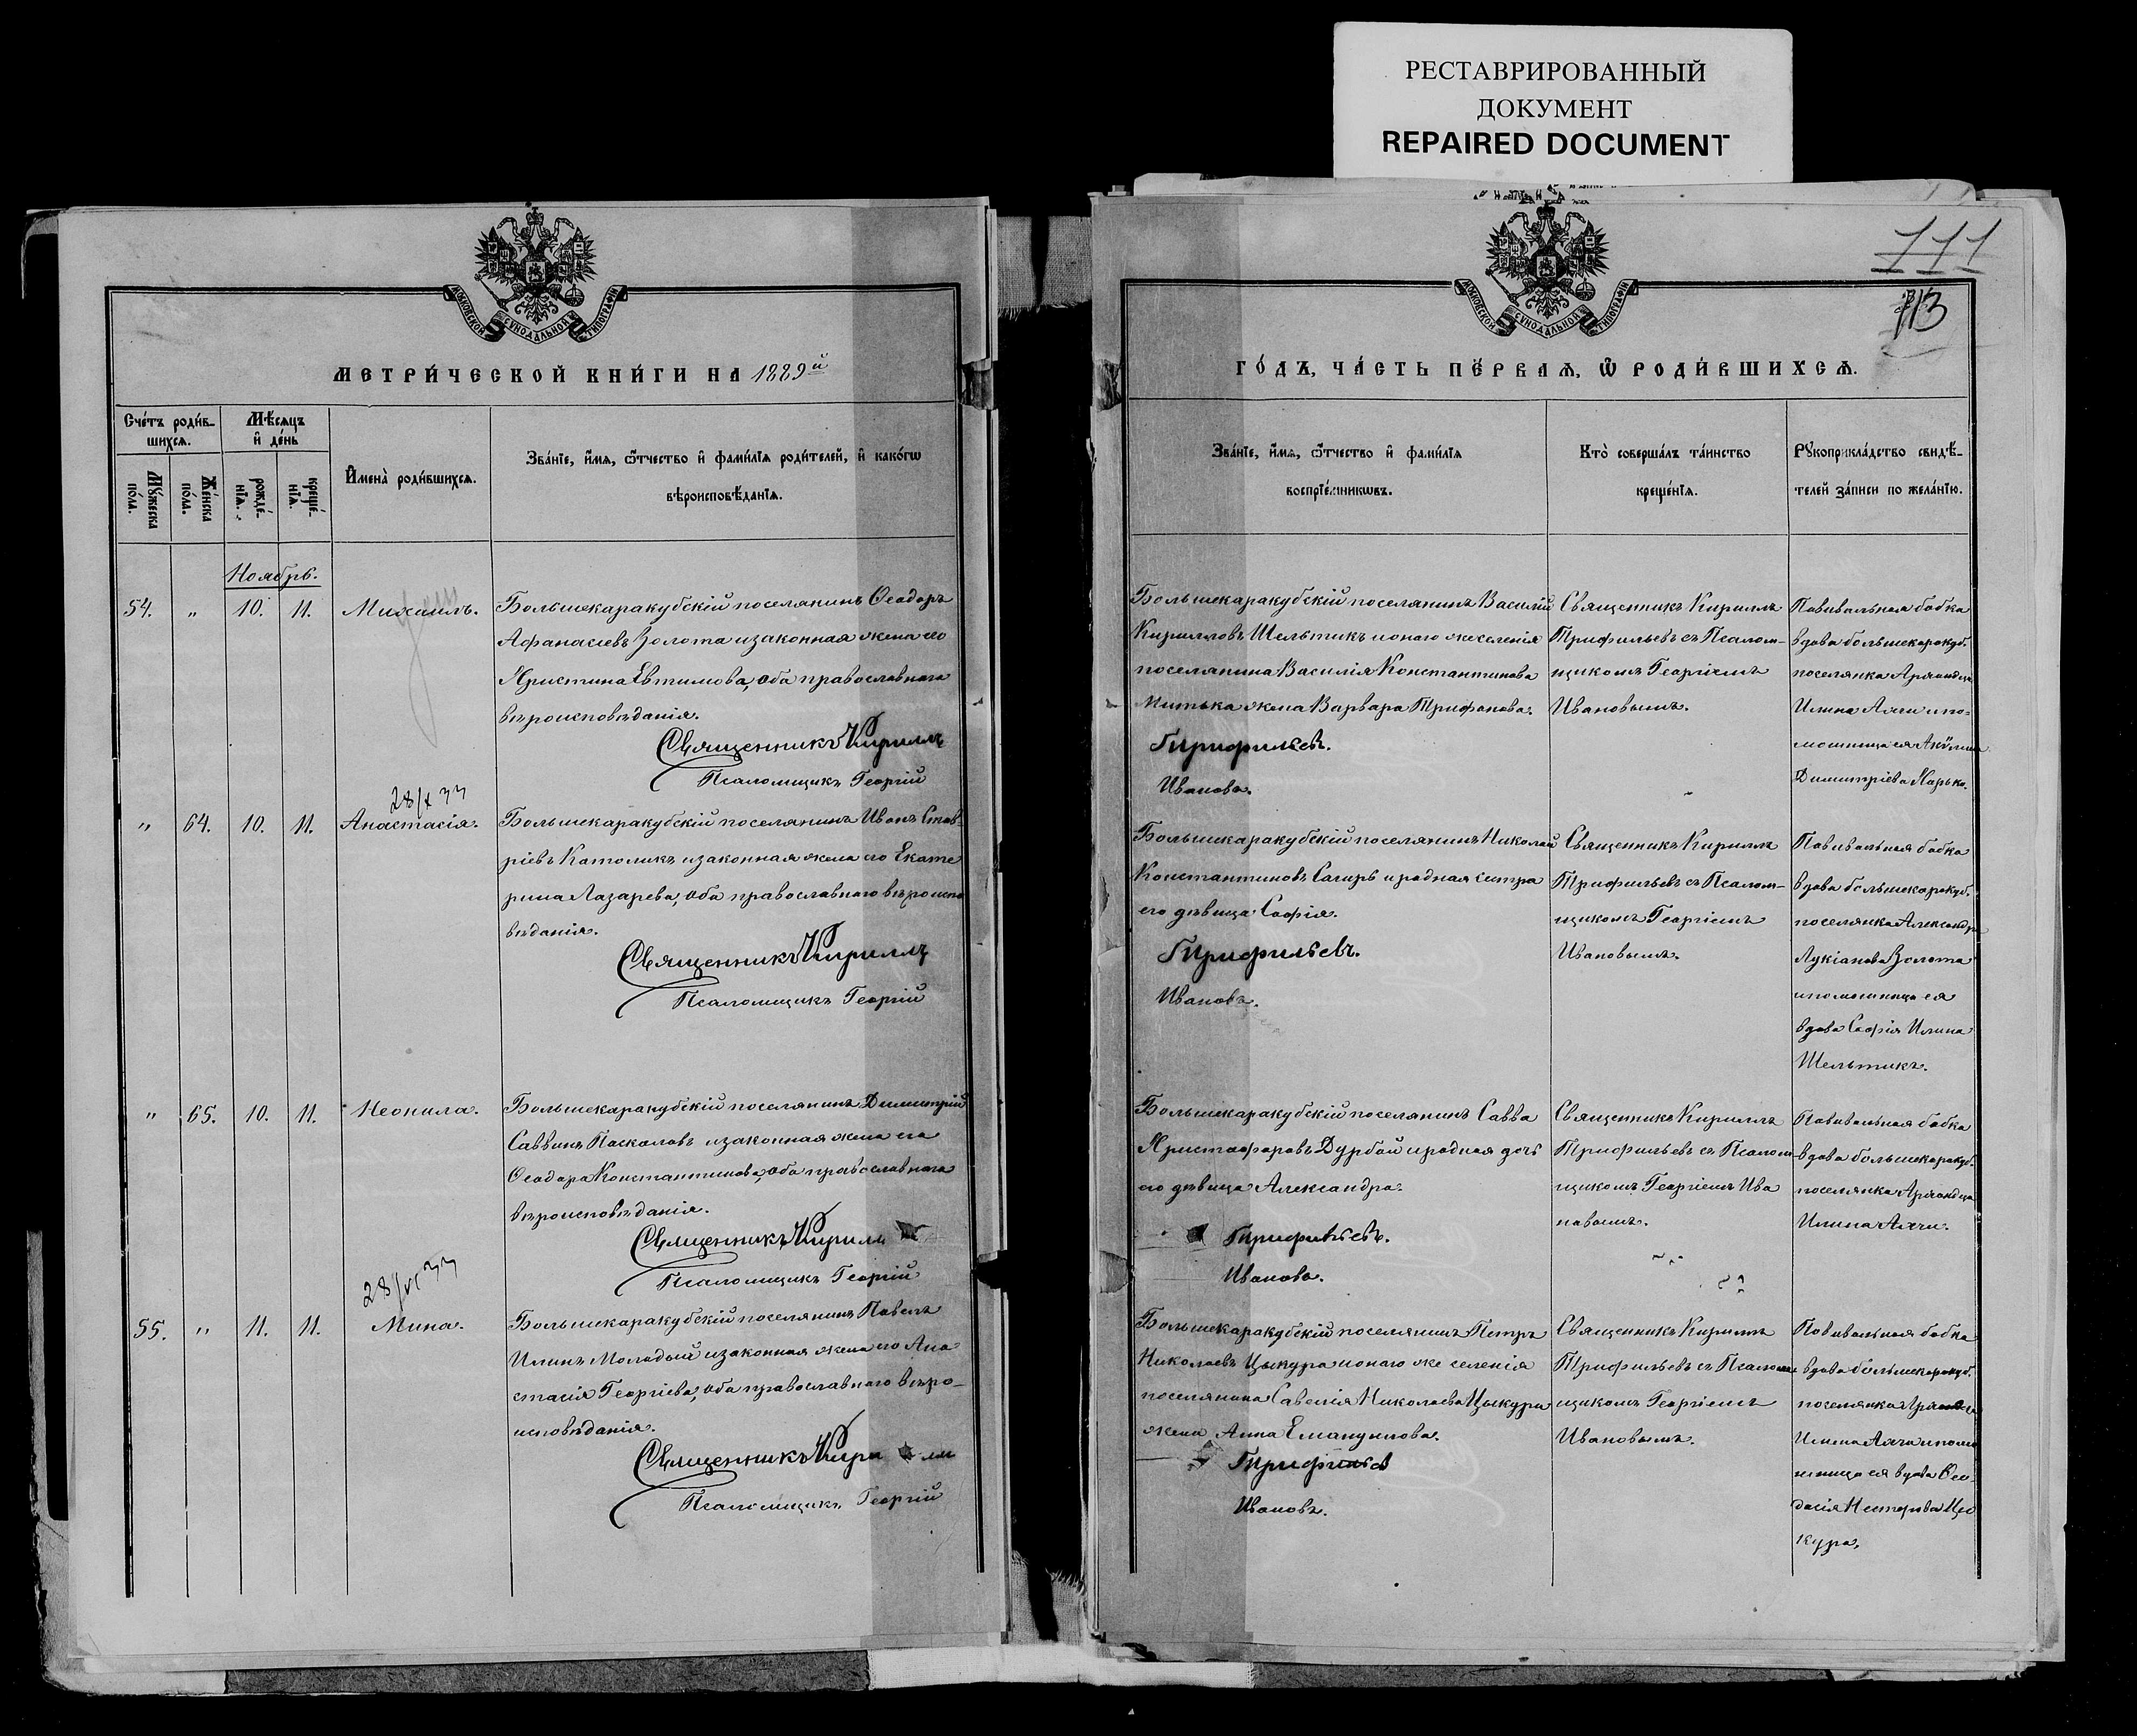 РЕСТАВРИРОВАННЫЙ
ДОКУМЕНТ
REPAIRED DOCUMENT
111
113
МОСКОВСКОЙ СѴНОДАЛЬНОЙ ТИПОГРАФІИ
МЕТРИ́ЧЕСКОЙ КНИ́ГИ НА 1889й
Сче́тъ роди́в-
шихсѧ.
Мѣ́сѧцъ
и҆ де́нь
Мꙋ́жеска
по́ла.
Же́нска
по́ла.
рожде́-
нїѧ.
креще́-
нїѧ.
И҆мена̀ роди́вшихсѧ.
Зва́нїе, и҆́мѧ, ѻ҆́тчество и҆ фами́лїѧ роди́телей, и҆ како́гѡ
вѣроисповѣ́данїѧ.
Ноябрь.
54. " 10. 11. Михаилъ.
Большекаракубскій поселянинъ Ѳеодоръ
Афанасіевъ Золота и законная жена его
Христина Евтимова, оба православнаго
вѣроисповѣданія.
Священникъ Кириллъ
Псаломщикъ Георгій
" 64. 10. 11. Анастасія.
Большекаракубскій поселянинъ Иванъ Став-
ріевъ Католикъ и законная жена его Екате
рина Лазарева, оба православнаго вѣроиспо
вѣданія.
Священникъ Кириллъ
Псаломщикъ Георгій
" 65. 10. 11. Неонила.
Большекаракубскій поселянинъ Димитрій
Саввинъ Пасхаловъ и законная жена его
Ѳеодора Константинова, оба православнаго
вѣроисповѣданія.
Священникъ Кирилл
Псаломщикъ Георгій
55. " 11. 11. Мина.
Большекаракубскій поселянинъ Павелъ
Илинъ Молодый и законная жена его Ана
стасія Георгіева, оба православнаго вѣро-
исповѣданія.
Священникъ Кирилл
Псаломщикъ Георгій
МОСКОВСКОЙ СѴНОДАЛЬНОЙ ТИПОГРАФІИ
ГО́ДЪ, ЧА́СТЬ ПЕ́РВАѦ, Ѽ РОДИ́ВШИХСѦ.
Зва́нїе, и҆́мѧ, ѻ҆́тчество и҆ фами́лїѧ
воспрїе́мникѡвъ.
Кто̀ соверша́лъ та́инство
креще́нїѧ.
Рꙋкоприкла́дство свидѣ́-
телей за́писи по жела́нїю.
Большекаракубскій поселянинъ Василій
Кирилловъ Шельтикъ и онаго же селенія
поселянина Василія Константинова
Митька жена Варвара Трифонова.
Трифильевъ.
Ивановъ.
Священникъ Кириллъ
Трифильевъ съ Псалом-
щикомъ Георгіемъ
Ивановымъ.
Повивальная бабка
вдова большекаракуб.
поселянка
Илина и по-
мощница ея
Димитріева Харько.
Большекаракубскій поселянинъ Николай
Константиновъ Сагиръ и родная сестра
его дѣвица Софія.
Трифильевъ.
Ивановъ.
Священникъ Кириллъ
Трифильевъ съ Псалом-
щикомъ Георгіемъ
Ивановымъ.
Повивальная бабка
вдова большекаракуб.
поселянка Александра
Лукіанова Золота
и помощница ея
вдова Софія Илина
Шельтикъ.
Большекаракубскій поселянинъ Савва
Христофоровъ Дурбой и родная дочь
его дѣвица Александра.
Трифильевъ.
Ивановъ.
Священникъ Кириллъ
Трифильевъ съ Псалом
щикомъ Георгіемъ Ива
новымъ.
Повивальная бабка
вдова большекаракуб.
поселянка
Илина
Большекаракубскій поселянинъ Петръ
Николаевъ Цыкура и онаго же селенія
поселянина Савелія Николаева Цыкуры
жена Анна Емануилова.
Трифильев
Ивановъ.
Священникъ Кириллъ
Трифильевъ съ Псалом
щикомъ Георгіемъ
Ивановымъ.
Повивальная бабка
вдова большекаракуб.
поселянка
Илина и помо
щница ея вдова Ѳео
досія Нестерова Цы
кура.